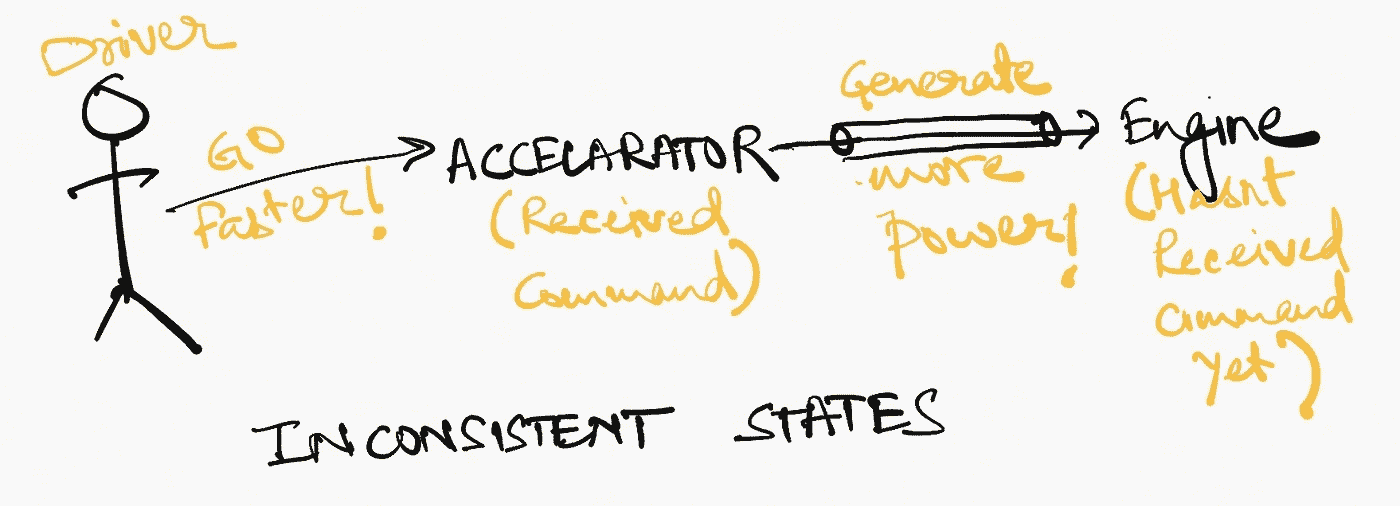 Driver
GO
faster!
ACCELARATOR
(Received
Command)
Generate
more
power!
Engine
(Hasnt
Received
Command
yet)
INCONSISTENT STATES